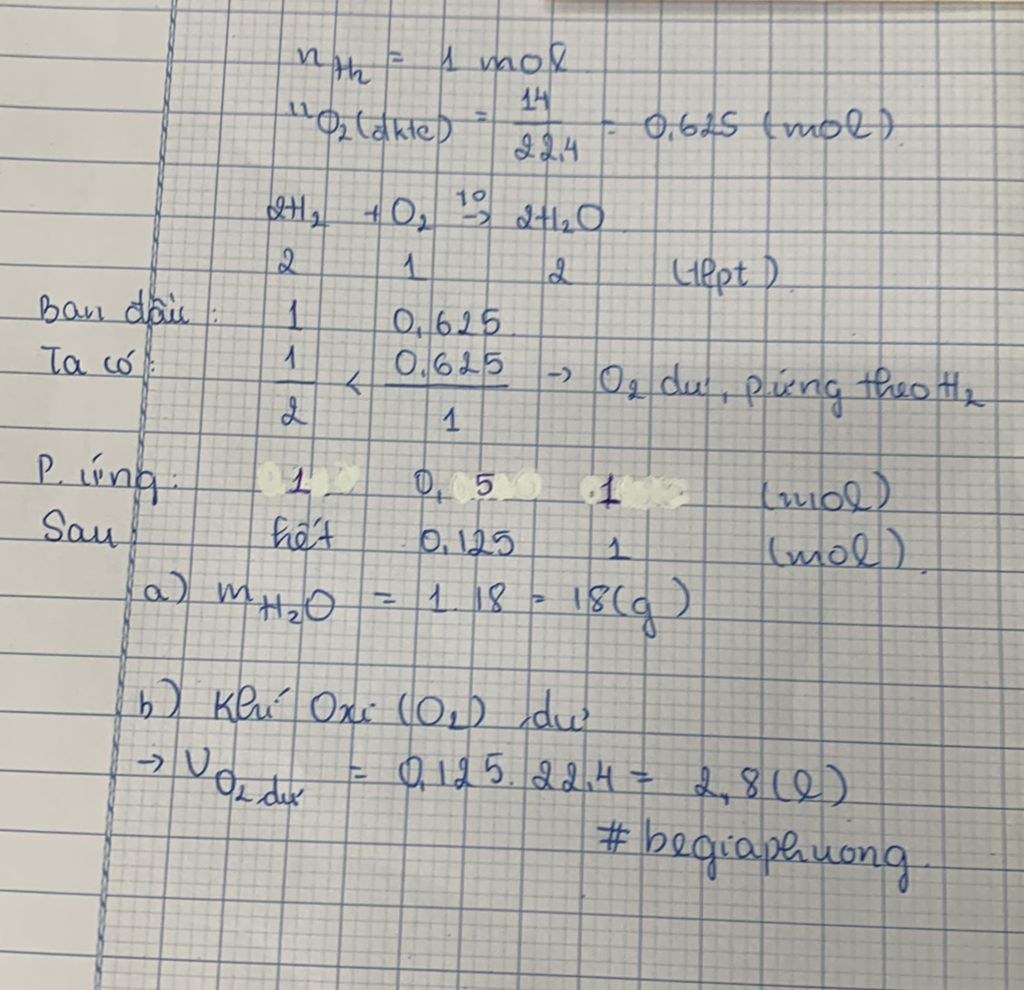 n H₂ = 1 mol
n O₂ (đktc) = 14/22,4 = 0,625 (mol)
2H₂ + O₂ t° → 2H₂O
2 1 2 (tlpt)
Ban đầu: 1 0,625
Ta có: 1/2 < 0,625/1 → O₂ dư, p.ứng theo H₂
P.ứng: 1 0,5 1 (mol)
Sau hết 0,125 1 (mol)
a) m H₂O = 1.18 = 18(g)
b) Khí Oxi (O₂) dư
→ V O₂ dư = 0,125.22,4 = 2,8(l)
# begiaphuong